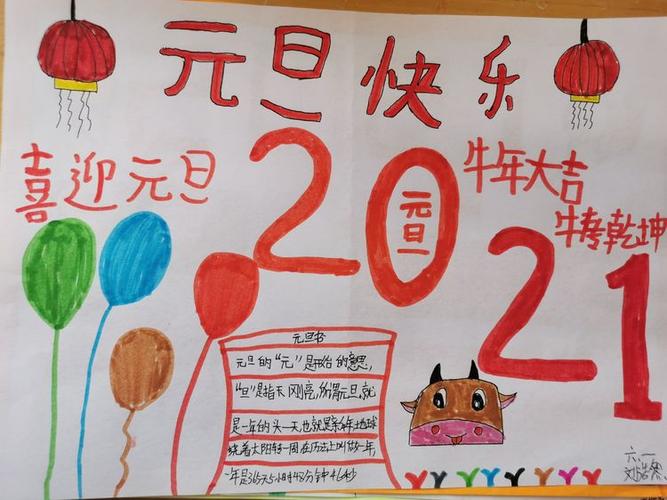 元旦快乐
喜迎元旦
2021
元旦
牛年大吉
牛转乾坤
元旦书
元旦的“元”是开始的意思,
“旦”是指天刚亮,所谓元旦,就
是一年的头一天也就是新年,地球
绕着太阳转一周在历法上叫做一年,
一年是365天5小时48分钟46秒
六.一